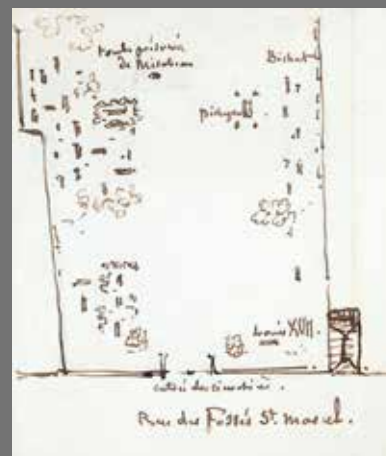 Tombe présumée
de Mirabeau
Bichat
Pichegru
Louis XVII.
entrée du cimetière.
Rue des Fossés St. Marcel.